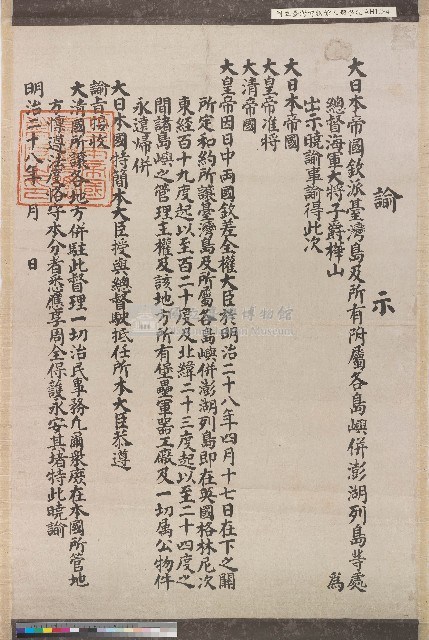 諭示
大日本帝國欽派臺灣島及所有附屬各島嶼併澎湖列島等處
總督海軍大將子爵樺山
為
出示曉諭事諭得此次
大日本帝國
大皇帝准將
大清帝國
大皇帝因日中両國欽差全權大臣於明治二十八年四月十七日在下之関
所定和約所讓臺灣島及所屬各島嶼併澎湖列島即在英國格林尼次
東經百十九度起以至百二十度及北緯二十三度起以至二十四度之
間諸島嶼之管理主權及該地方所有堡壘軍器工廠及一切属公物件
永遠帰併
大日本國特簡本大臣授與總督駛抵任所本大臣恭遵
諭旨接收
大清國所讓各地方併駐此督理一切治民事務凢爾衆庶在本國所管地
方懍遵法度恪守本分者悉應享周全保護永安其堵特此曉諭
明治二十八年 月 日